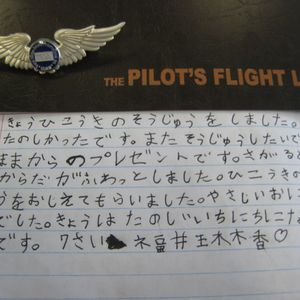 THE PILOT'S FLIGHT L
きょうひこうきのそうじゅうをしました。
たのしかったです。またそうじゅうしたいで
ままからのプレゼントです。さがる
からだがふわっとしました。ひこうきの
うをおしえてもらいました。やさしいおに
でした。きょうはたのしいいちにちにな
です。7さい 福井玉木木香♡